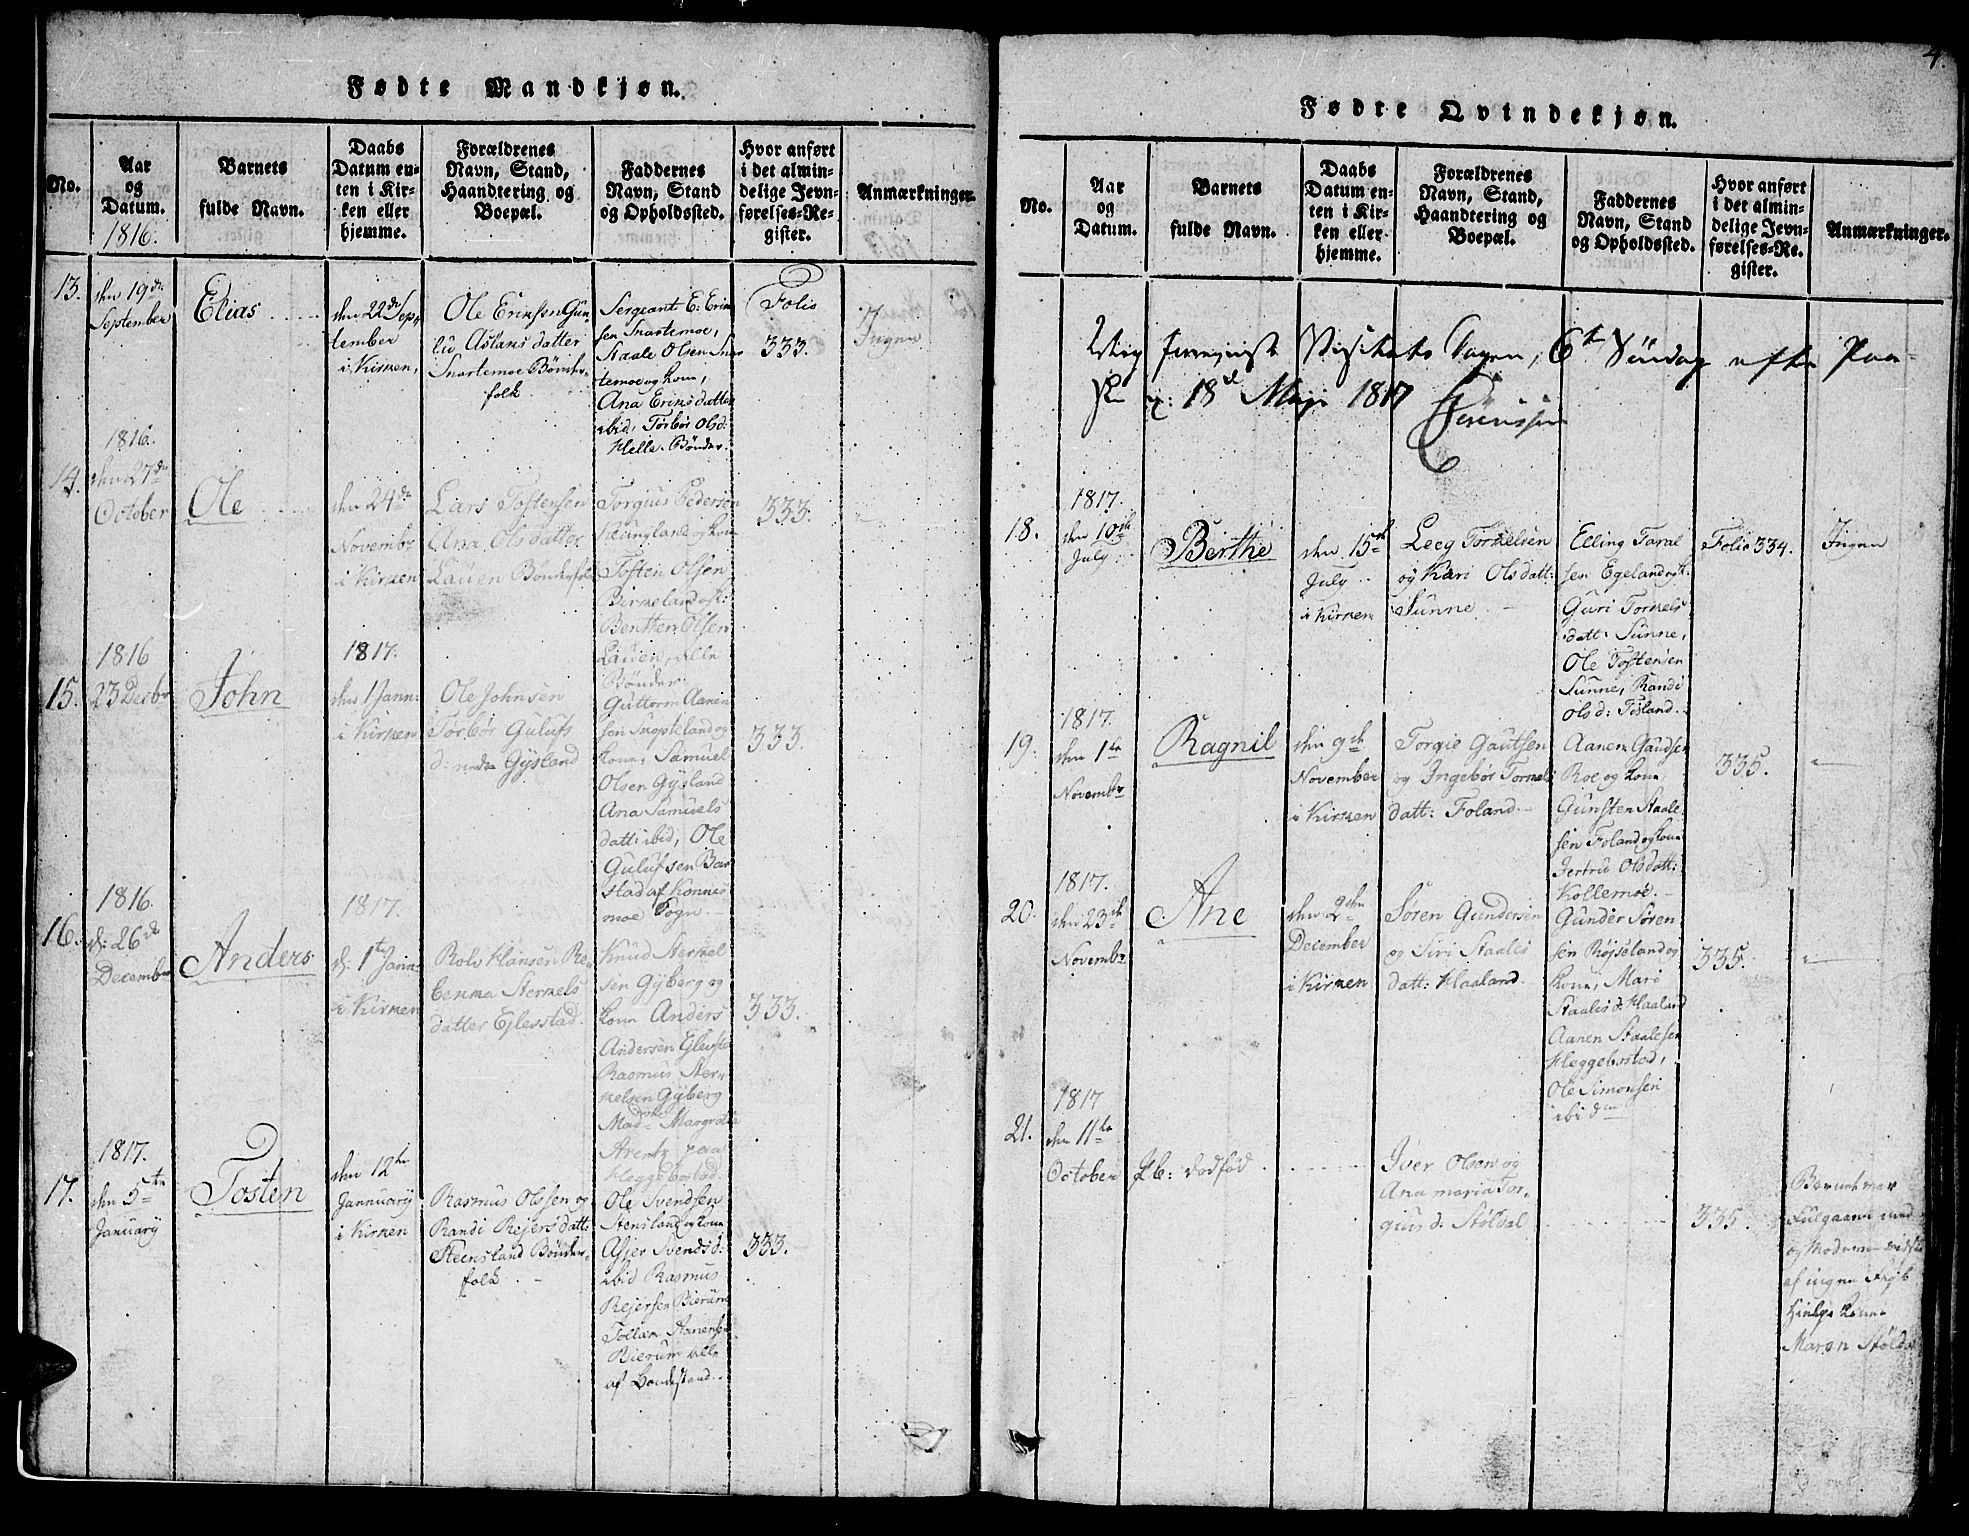 Fødte Mandkjøn.
No.
Aar
og
Datum.
1816.
Barnets
fulde Navn.
Daabs
Datum en-
ten i Kir-
ken eller
hjemme.
Forældrenes
Navn, Stand,
Haandtering og
Boepæl.
Faddernes
Navn, Stand
og Opholdssted.
Hvor anført
i det almin-
delige Jevn-
førelses-Re-
gister.
Anmærkninger.
13.
den 19de
September
Elias
den 22de Sep-
tember
i Kirken,
Ole Eriksen Gun-
lu Aslaks datter
Snartemoe Bønder-
folk
Sergeant E: Erik-
sen Snartemoe,
Staale Olsen Snar
temoe og kone,
Ana Eriksdatter
ibid, Torbør Olsd:
Helle. Bønder.
Folio
333.
Ingen
1816.
14.
den 27de
October
Ole
den 24de
Novembr
i Kirken
Lars Tostensen
Ana Olsdatter
Lauen Bønderfolk
Torgius Pedersen
Kúngland og kone
Tosten Olsen
Birkeland
Bentten Olsen
Lauen, alle
Bønder.
333.
1816
15.
23 Decbr
John
1817.
den 1 Jann:
i Kirken
Ole Johnsen
Torbør Gulufs
Gysland
Guttorm Aanen
sen og
kone, Samuel
Olsen Gysland
Ana Samuels
datt: ibid, Ole
Gulufsen Bar
stad af Konnes
moe Sogn
333.
1816.
16.
d: 26de
December
Anders
1817.
d: 1te Jann:
i Kirken
Rolv Hansen Re,
benna Sterkels
datter Eglestad.
Knud Sterkel
sen Gyberg og
kone Anders
Andersen
Rasmus Ster,
kelsen Gyberg
Margrete
Arentz paa
Heggebostad.
333.
1817.
17.
den 5te
January
Tosten
den 12te
Jannuary
i Kirken
Rasmus Olsen og
Randi Rejersdatt:
Steensland Bønder-
folk
Ole Svendsen
Stensland og kone
Asjer Svendsd:
ibid Rasmus
Rejersen Bierum
Tollak Aanensen
Bierum alle
af Bondestand.
333.
4.
Fødte Qvindekjøn.
No.
Aar
og
Datum.
Barnets
fulde Navn.
Daabs
Datum en-
ten i Kir-
ken eller
hjemme.
Forældrenes
Navn, Stand,
Haandtering og
Boepæl.
Faddernes
Navn, Stand
og Opholdssted.
Hvor anført
i det almin-
delige Jevn-
førelses-Re-
gister.
Anmærkninger.
Visitats Dagen, 6te Søndag efter Paa-
ske 18de Maji 1817
Sørenssen
1817.
18.
den 10de
July
Berthe
den 15de
July
i Kirken
Leeg Torkelsen
og Kari Olsdatt:
Sunne
Elling Taral
sen Egeland og k:
Guri Torkels
datt: Sunne,
Ole Tostensen
Sunne, Randi
Olsd: Tisland.
Folio 334.
Ingen
1817.
19.
den 1te
Novembr
Ragnil
den 9de
November
i Kirken
Torgie Gautsen
og Ingebør Torkels
datt: Foland.
Aanen Gaudsen
Roe og kone,
Gunsten Staale
sen Foland og kone
Jertrud Olsdatt:
Kollemoe.
335.
1817.
20.
den 23de
Novembr
Ane
den 2den
December
i Kirken
Søren Gundersen
og Siri Staales
datt: Haaland
Gunder Søren
sen Røjseland og
kone, Mari
Staalesd: Haaland
Aanen Staalesen
Heggebostad,
Ole Simonsen
ibidem
335.
1817
21.
den 11te
October
dødfød
Iver Olsen og
Ana Maria Tor,
gius d: Støldal
335.
Barnet var
Fulgaaen
og Moderen
af ingen
Hielpe kone
Maren Støldal